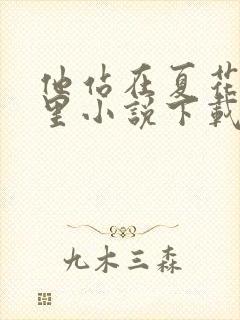 他站在夏花
里小說下載
九木三森